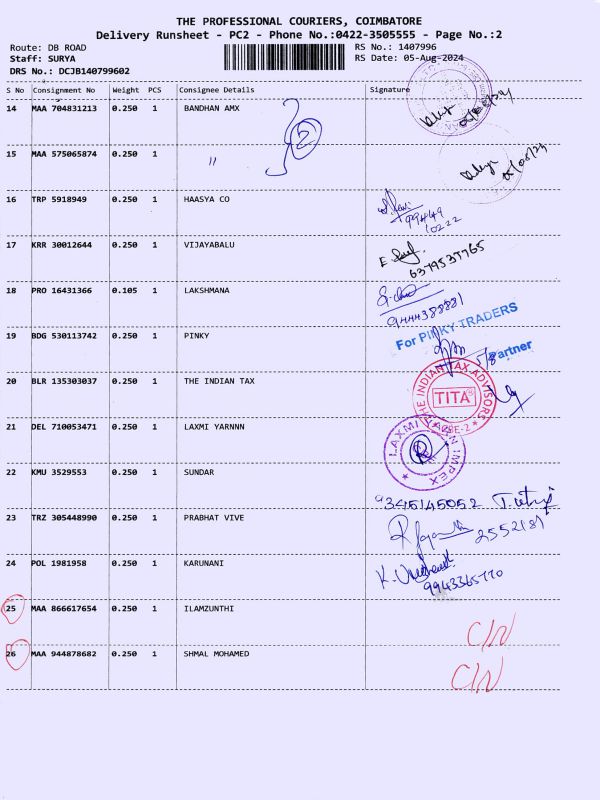 THE PROFESSIONAL COURIERS, COIMBATORE
Delivery Runsheet - PC2 - Phone No.:0422-3505555 - Page No.:2
Route: DB ROAD
RS No.: 1407996
Staff: SURYA
RS Date: 05-Aug-2024
DRS No.: DCJB140799602
S No Consignment No Weight PCS Consignee Details Signature
14 MAA 704831213 0.250 1 BANDHAN AMX
2
15 MAA 575065874 0.250 1 "
16 TRP 5918949 0.250 1 HAASYA CO
17 KRR 30012644 0.250 1 VIJAYABALU
6379537765
18 PRO 16431366 0.105 1 LAKSHMANA
9444388881
19 BDG 530113742 0.250 1 PINKY
For PINKY TRADERS
5/8 Partner
20 BLR 135303037 0.250 1 THE INDIAN TAX
THE INDIAN TAX ADVISORS
TITA
21 DEL 710053471 0.250 1 LAXMI YARNNN
LAXMI YARN IMPEX
22 KMU 3529553 0.250 1 SUNDAR
9345145052
23 TRZ 305448990 0.250 1 PRABHAT VIVE
2552181
24 POL 1981958 0.250 1 KARUNANI
9943365770
25 MAA 866617654 0.250 1 ILAMZUNTHI
C/N
26 MAA 944878682 0.250 1 SHMAL MOHAMED
C/N